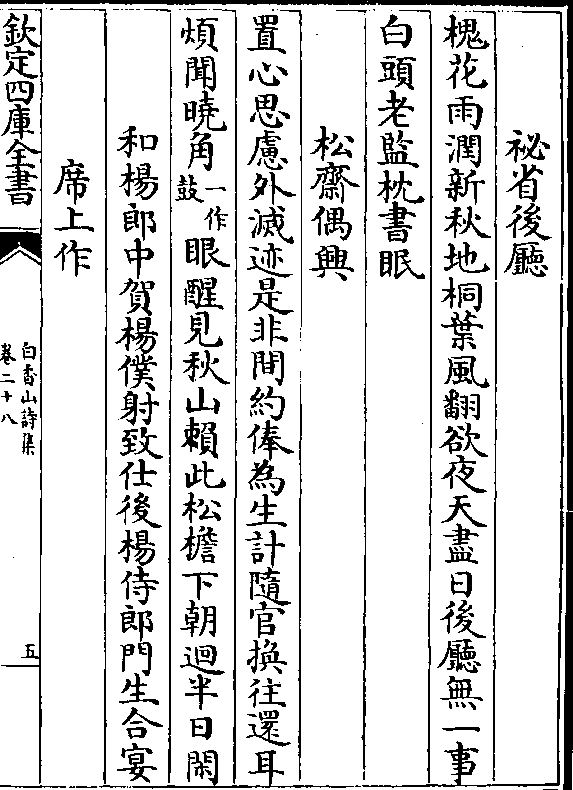 祕省後廳
槐花雨潤新秋地桐葉風翻欲夜天盡日後廳無一事
白頭老監枕書眠
松齋偶興
置心思慮外滅迹是非間約俸為生計隨官換往還耳
煩聞曉角一作鼓眼醒見秋山頼此松檐下朝迴半日閑
和楊郎中賀楊僕射致仕後楊侍郎門生合宴
席上作
欽定四庫全書
白香山詩集
卷二十八
五